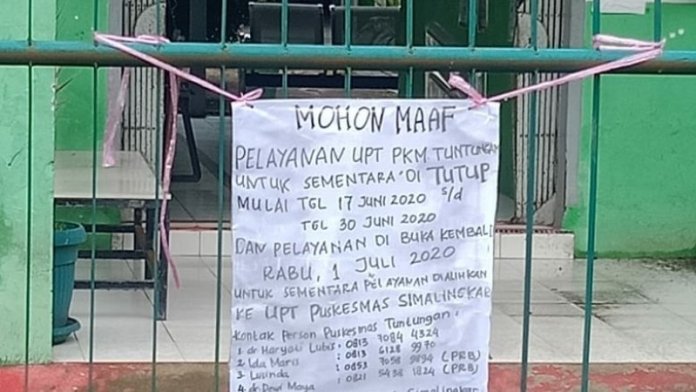 MOHON MAAF
PELAYANAN UPT PKM TUNTUNGAN
UNTUK SEMENTARA DI TUTUP
MULAI TGL 17 JUNI 2020 s/d
TGL 30 JUNI 2020
DAN PELAYANAN DI BUKA KEMBALI
RABU, 1 JULI 2020
UNTUK SEMENTARA PELAYANAN DIALIHKAN
KE UPT PUSKESMAS SIMALINGKAR
Kontak Person Puskesmas Tuntungan :
1. dr Haryati Lubis : 0813 7084 4324
2. Ida Maris : 0813 6128 9970
3. Lusinda : 0853 7058 9894 (PRB)
: 0821 5438 1824 (PRB)
4. dr Dewi Maya
Simalingkar